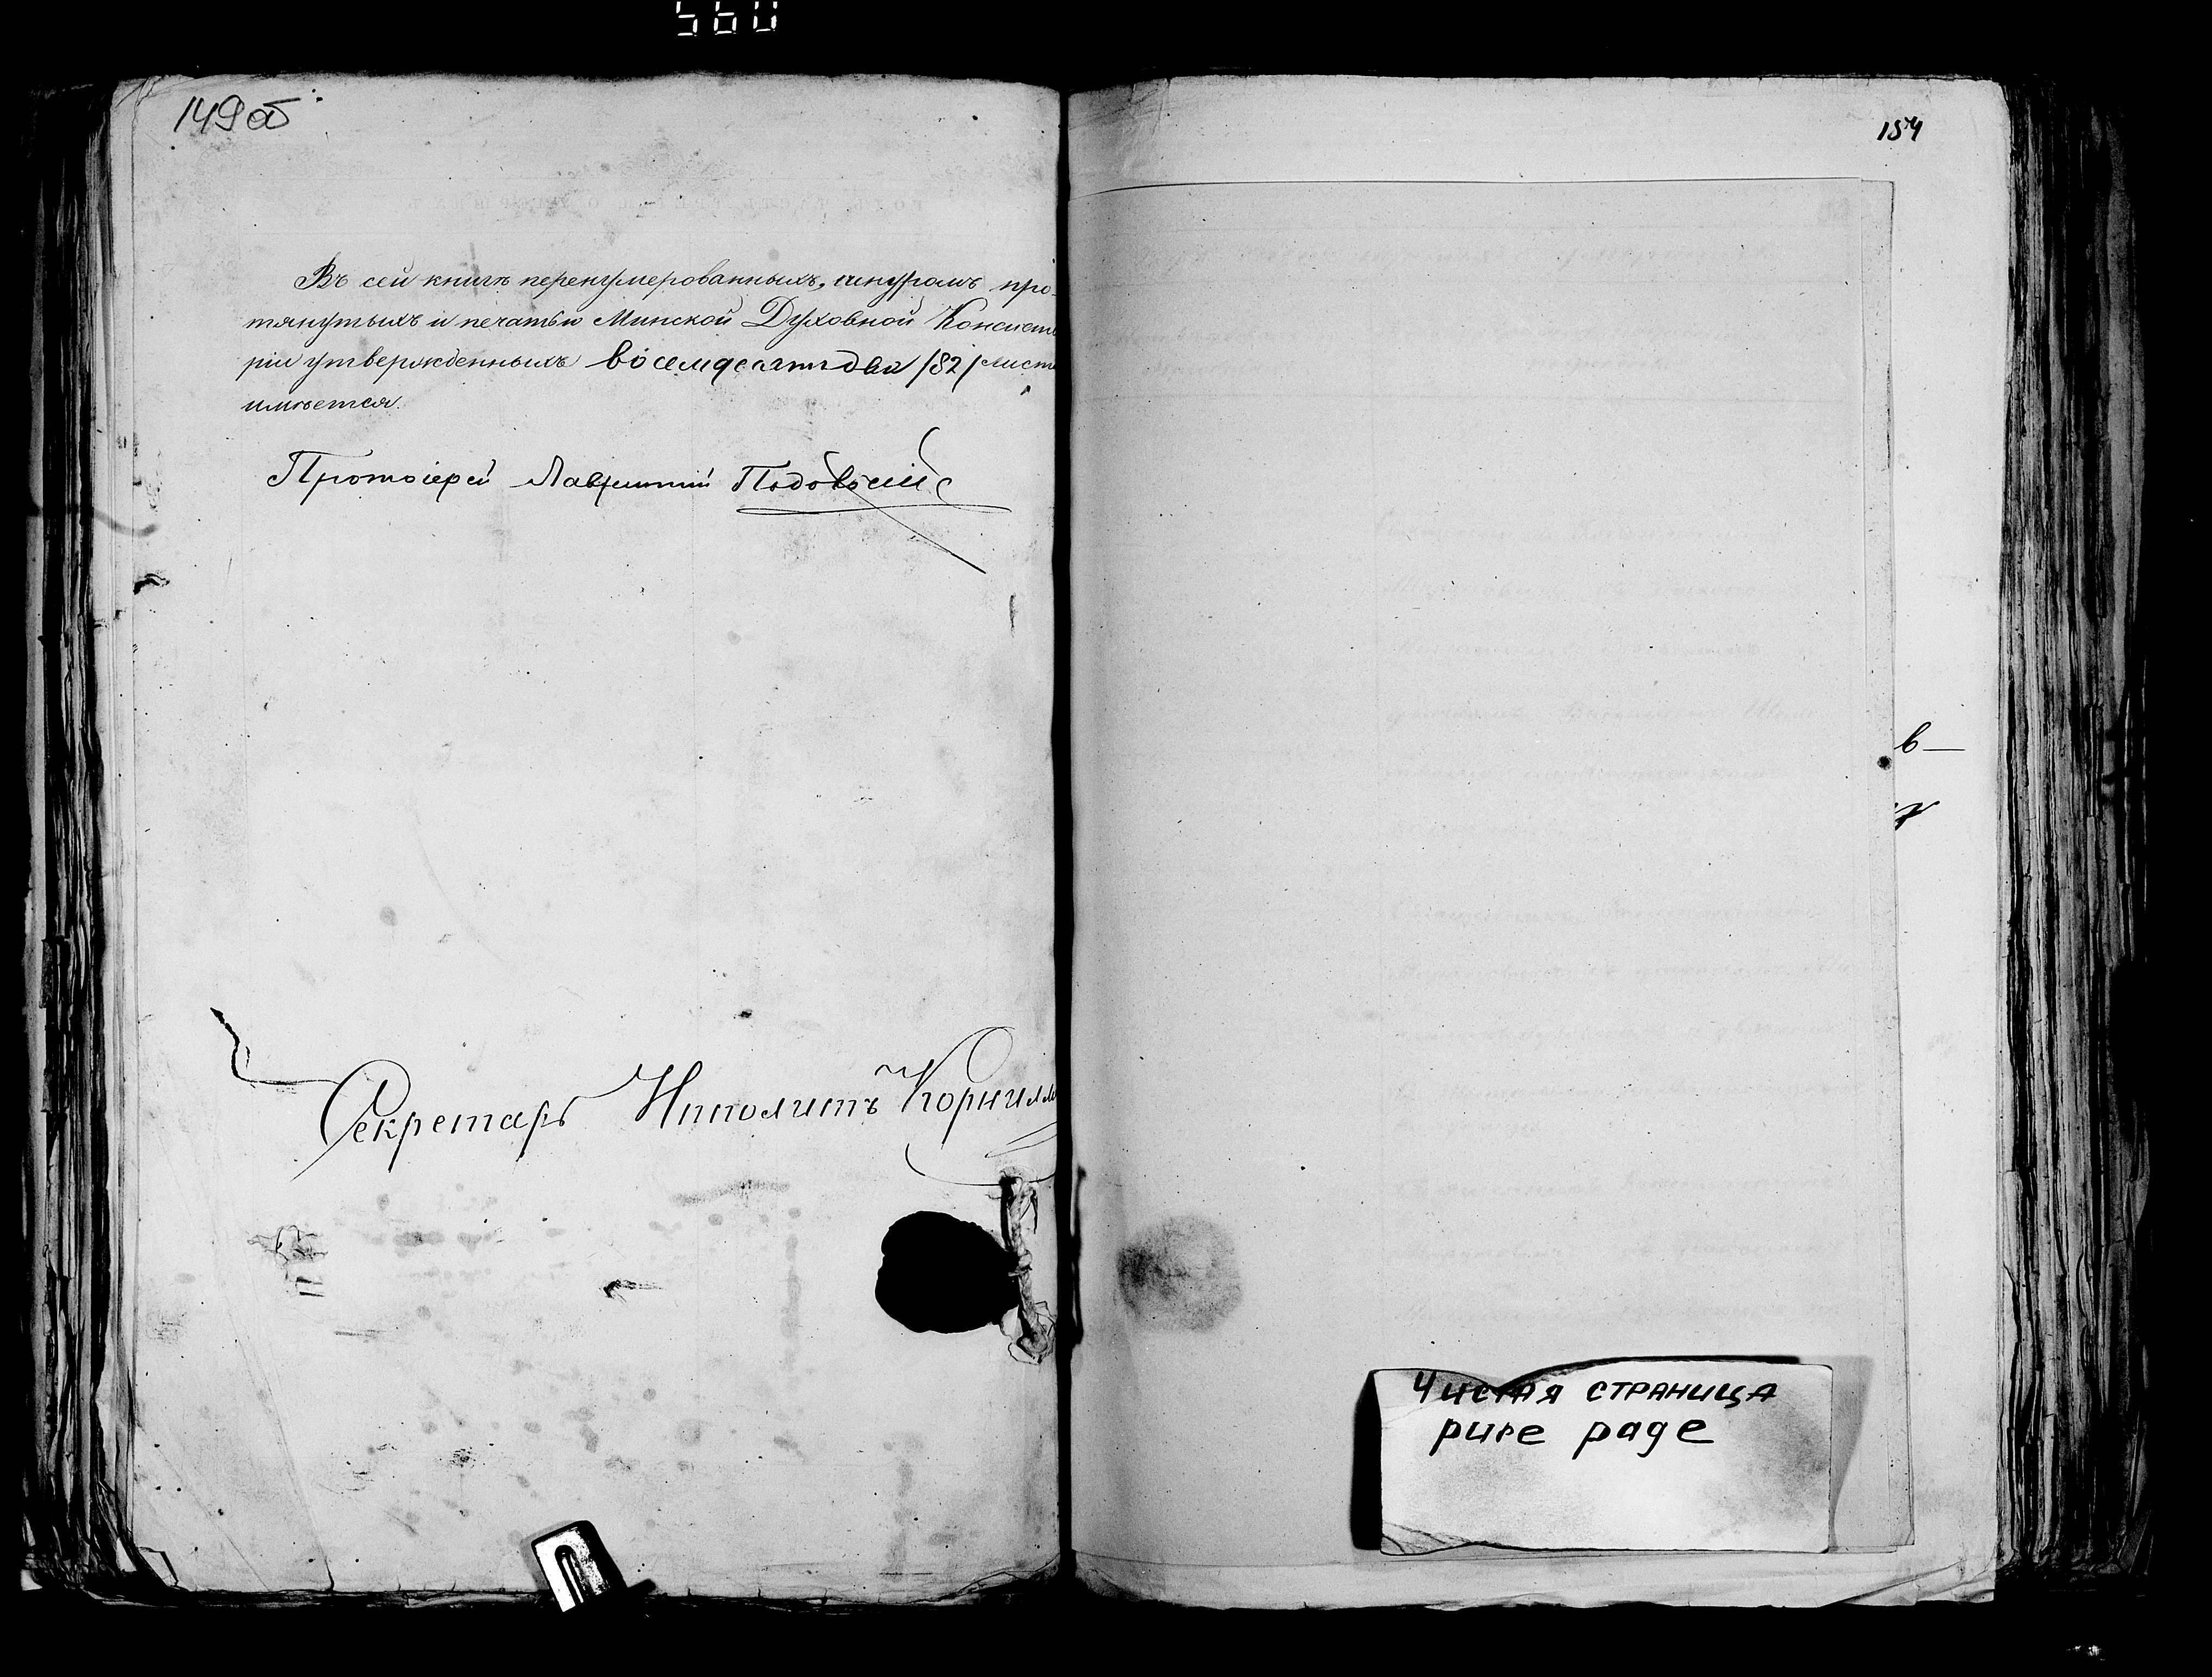 560
149 об
Въ сей книгѣ перенумерованныхъ, шнуромъ про-
тянутыхъ и печатью Минской Духовной Консисто
ріи утвержденныхъ восемдесятъ два /82/ лист
имѣется.
Протоіерей Лаврентій
Секретарь Ипполитъ Корнил
154
в—
Чистая страница
pure page